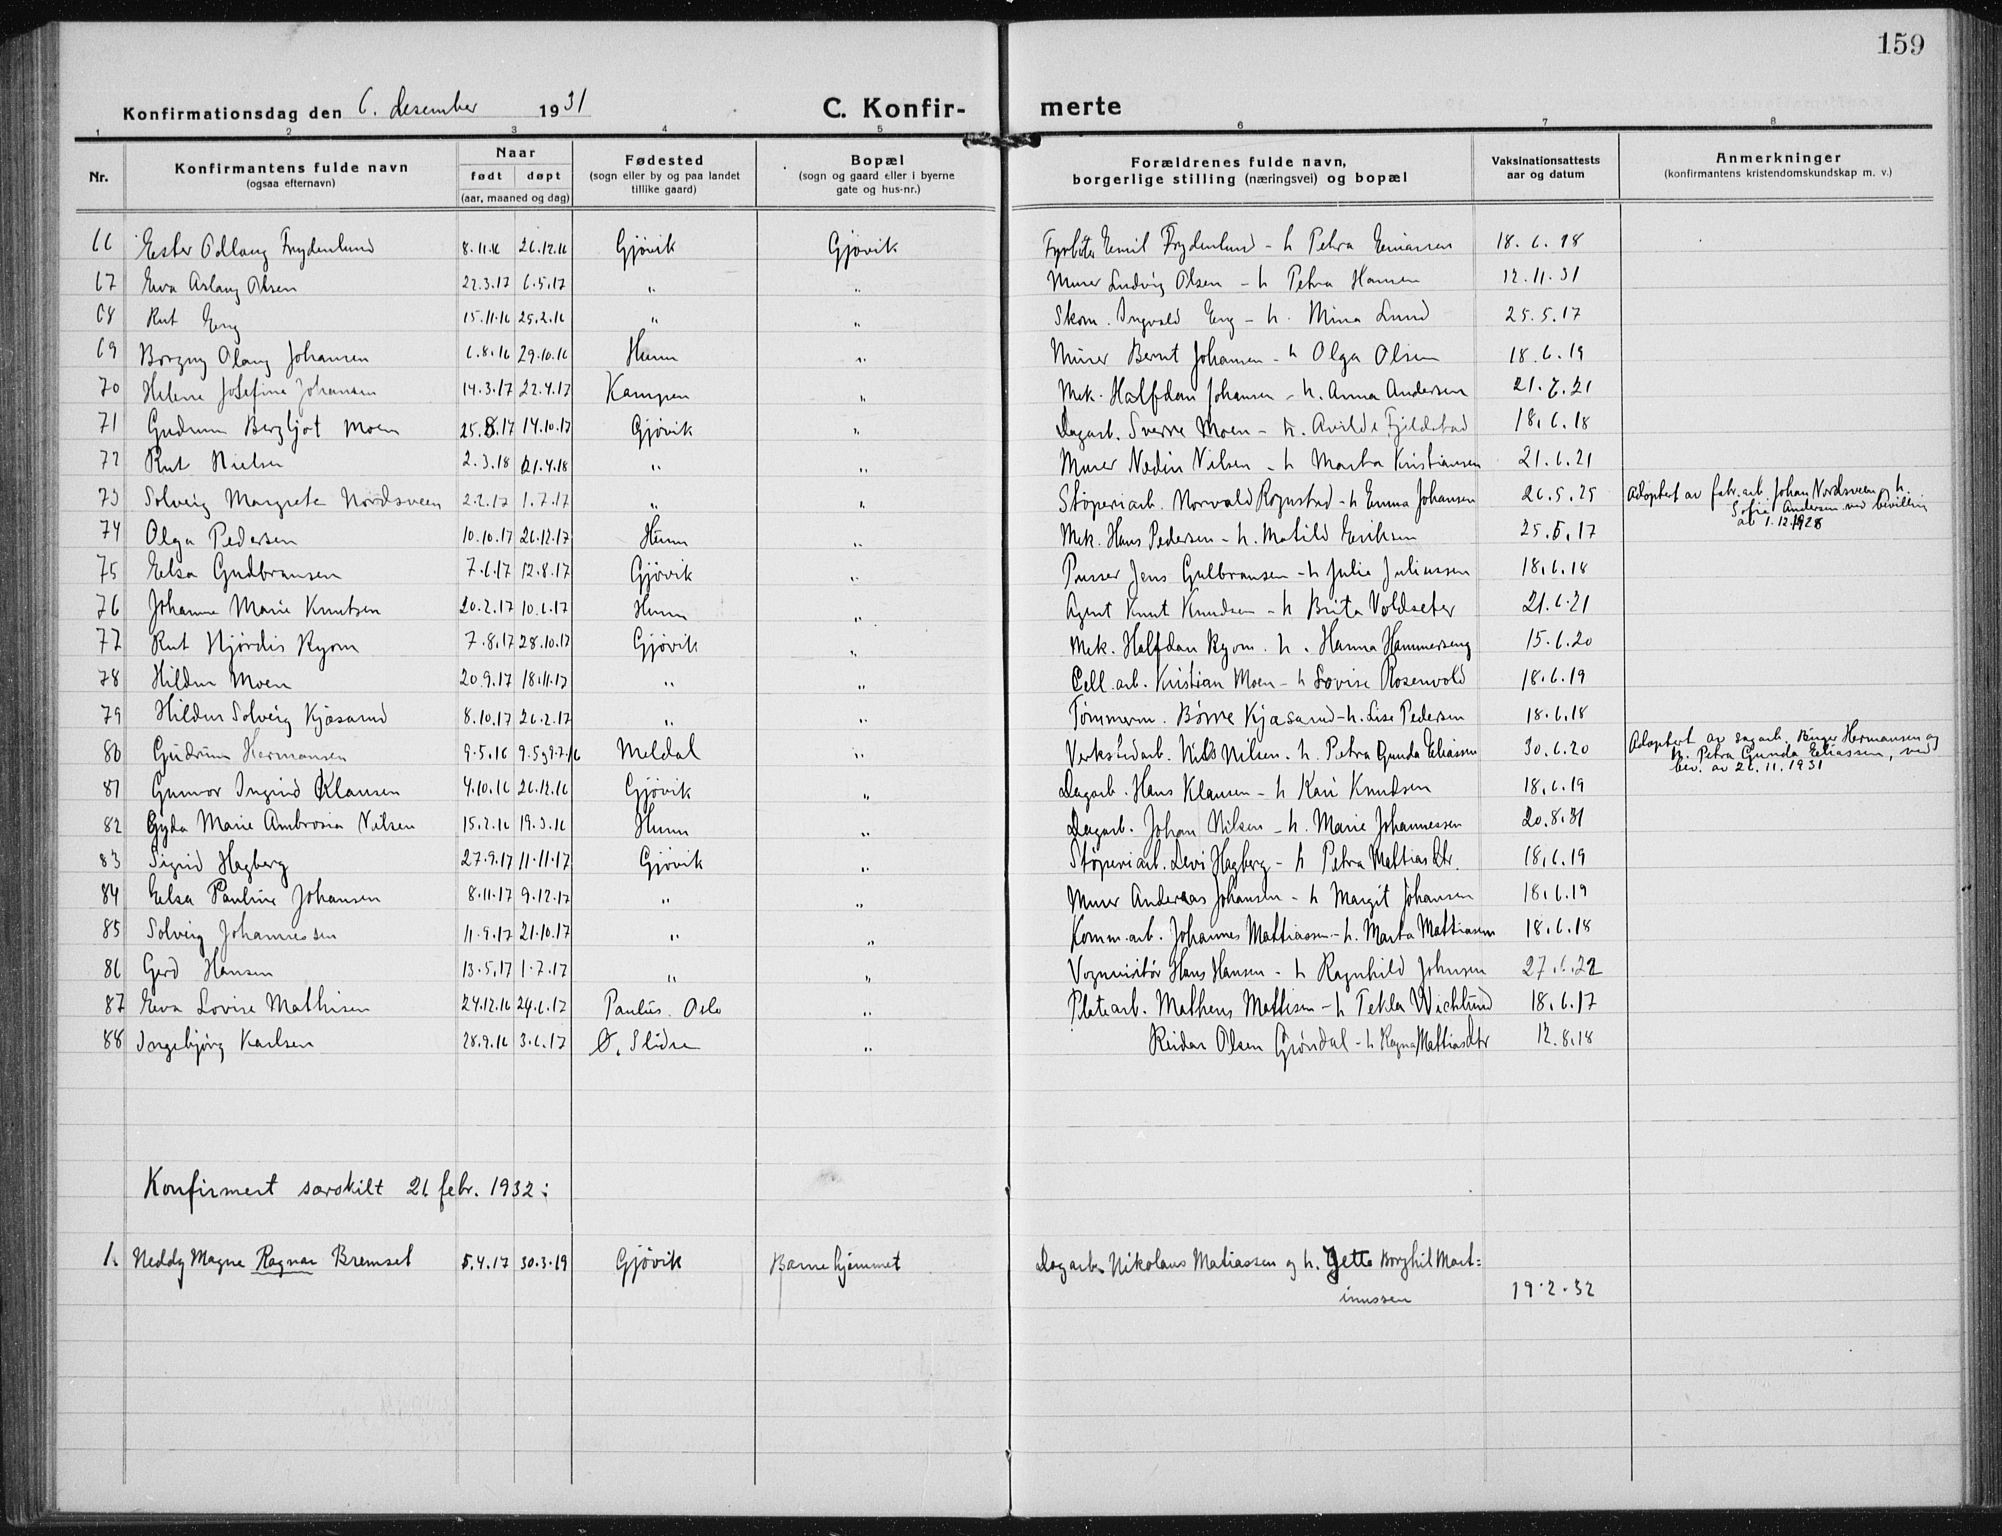 159
Konfirmationsdag den 6. desember 1931 C. Konfir- merte
1 2 3 4 5 6 7 8
Nr. Konfirmantens fulde navn (ogsaa efternavn) Naar født døpt (aar, maaned og dag) Fødested (sogn eller by og paa landet tillike gaard) Bopæl (sogn og gaard eller i byerne gate og hus-nr.) Forældrenes fulde navn, borgerlige stilling (næringsvei) og bopæl Vaksinationsattests aar og datum Anmerkninger (konfirmantens kristendomskundskap m. v.)
66 Ester Odlaug Frydenlund 8.11.16 26.12.16 Gjøvik Gjøvik Fyrbøter Emil Frydenlund - h Petra Einarsen 18.6.18
67 Eva Aslaug Olsen 22.3.17 6.5.17 " " Murer Ludvig Olsen - h Petra Hansen 12.11.31
68 Rut Eng 15.11.16 25.2.16 " " Skom. Ingvald Eng - h. Mina Lund 25.5.17
69 Borgny Olaug Johansen 6.8.16 29.10.16 Hunn " Murer Bernt Johansen - h Olga Olsen 18.6.19
70 Helene Josefine Johansen 14.3.17 22.4.17 Kampen " Mek. Halfdan Johansen - h. Anna Andersen 21.6.21
71 Gudrun Bergljot Moen 25.8.17 14.10.17 Gjøvik " Dagarb. Sverre Moen - h. Avilde Fjeldstad 18.6.18
72 Rut Nielsen 2.3.18 21.4.18 " " Murer Nedin Nilsen - h Marta Kristiansen 21.6.21
73 Solveig Margrete Nordsveen 2.2.17 1.7.17 " " Støperiarb. Norvald Rognstad - h Emma Johansen 26.5.25 Adoptert av fabr. arb. Johan Nordsveen, h. Sofie Andersen ved bevilling av 1.12.1928
74 Olga Pedersen 10.10.17 26.12.17 Hunn " Mek. Hans Pedersen - h. Matild Eriksen 25.5.17
75 Elsa Gudbransen 7.6.17 12.8.17 Gjøvik " Pusser Jens Gulbransen - h Julie Juliussen 18.6.18
76 Johanne Marie Knutsen 20.2.17 10.6.17 Hunn " Agent Knut Knudsen - h Brita Voldseter 21.6.21
77 Rut Hjørdis Ryom 7.8.17 28.10.17 Gjøvik " Mek. Halfdan Ryom. h. Hanna Hammerseng 15.6.20
78 Hildur Moen 20.9.17 18.11.17 " " Cell. arb. Kristian Moen - h Lovise Rosenvold 18.6.19
79 Hildur Solveig Kjøsarud 8.10.17 26.2.17 " " Tømmerm. Børre Kjøsarud - h. Lise Pedersen 18.6.18
80 Gudrun Hermansen 9.5.16 9.5 9.7.16 Meldal " Verkstedarb. Nils Nilsen. h. Petra Gunda Eliassen 30.6.20 Adoptert av dagarb. Birger Hermansen og h. Petra Gunda Eliassen, ved bev. av 26.11.1931
81 Gunvor Ingrid Klausen 4.10.16 26.12.16 Gjøvik " Dagarb. Hans Klausen - h Kari Knudsen 18.6.19
82 Gyda Marie Ambrosia Nilsen 15.2.16 19.3.16 Hunn " Dagarb. Johan Nilsen - h. Marie Johannessen 20.8.31
83 Sigrid Hagberg 27.9.17 11.11.17 Gjøvik " Støperiarb. Levi Hagberg - h Petra Mattiasdtr. 18.6.19
84 Elsa Pauline Johansen 8.11.17 9.12.17 " " Murer Andereas Johansen - h Margit Johansen 18.6.19
85 Solveig Johannessen 11.9.17 21.10.17 " " Komm. arb. Johannes Mattiassen - h. Marta Mattiasen 18.6.18
86 Gerd Hansen 13.5.17 1.7.17 " " Vognvisitør Hans Hansen - h Ragnhild Johnsen 27.6.22
87 Eva Lovise Mathisen 24.12.16 24.6.17 Paulus. Oslo " Platearb. Matheus Mattisen - h Tekla Wichlund 18.6.17
88 Ingebjørg Karlsen 28.9.16 3.6.17 Ø. Slidre " Reidar Olsen Grøndal - h Ragna Mattiasdtr 12.8.18
Konfirmert særskilt 21 febr. 1932:
1. Neddy Magne Ragnar Bremset 5.4.17 30.3.19 Gjøvik Barnehjemmet Dagarb. Nikolaus Matiassen og h. Jette Borghil Mart=
inussen 19.2.32